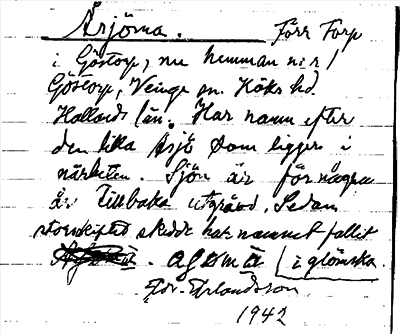 Årjöma. Förr Torp
i Göstorp, nu hemman n:r 1
Göstorp, Veinge sn. Höks hd.
Hallands län. Har namn efter
den lilla Årsjö som ligger i
närheten. Sjön är för några
år tillbaka utgrävd. Sedan
storskiftet skedde har namnet fallit
. i glömska.
Edv. Erlandsson
1942